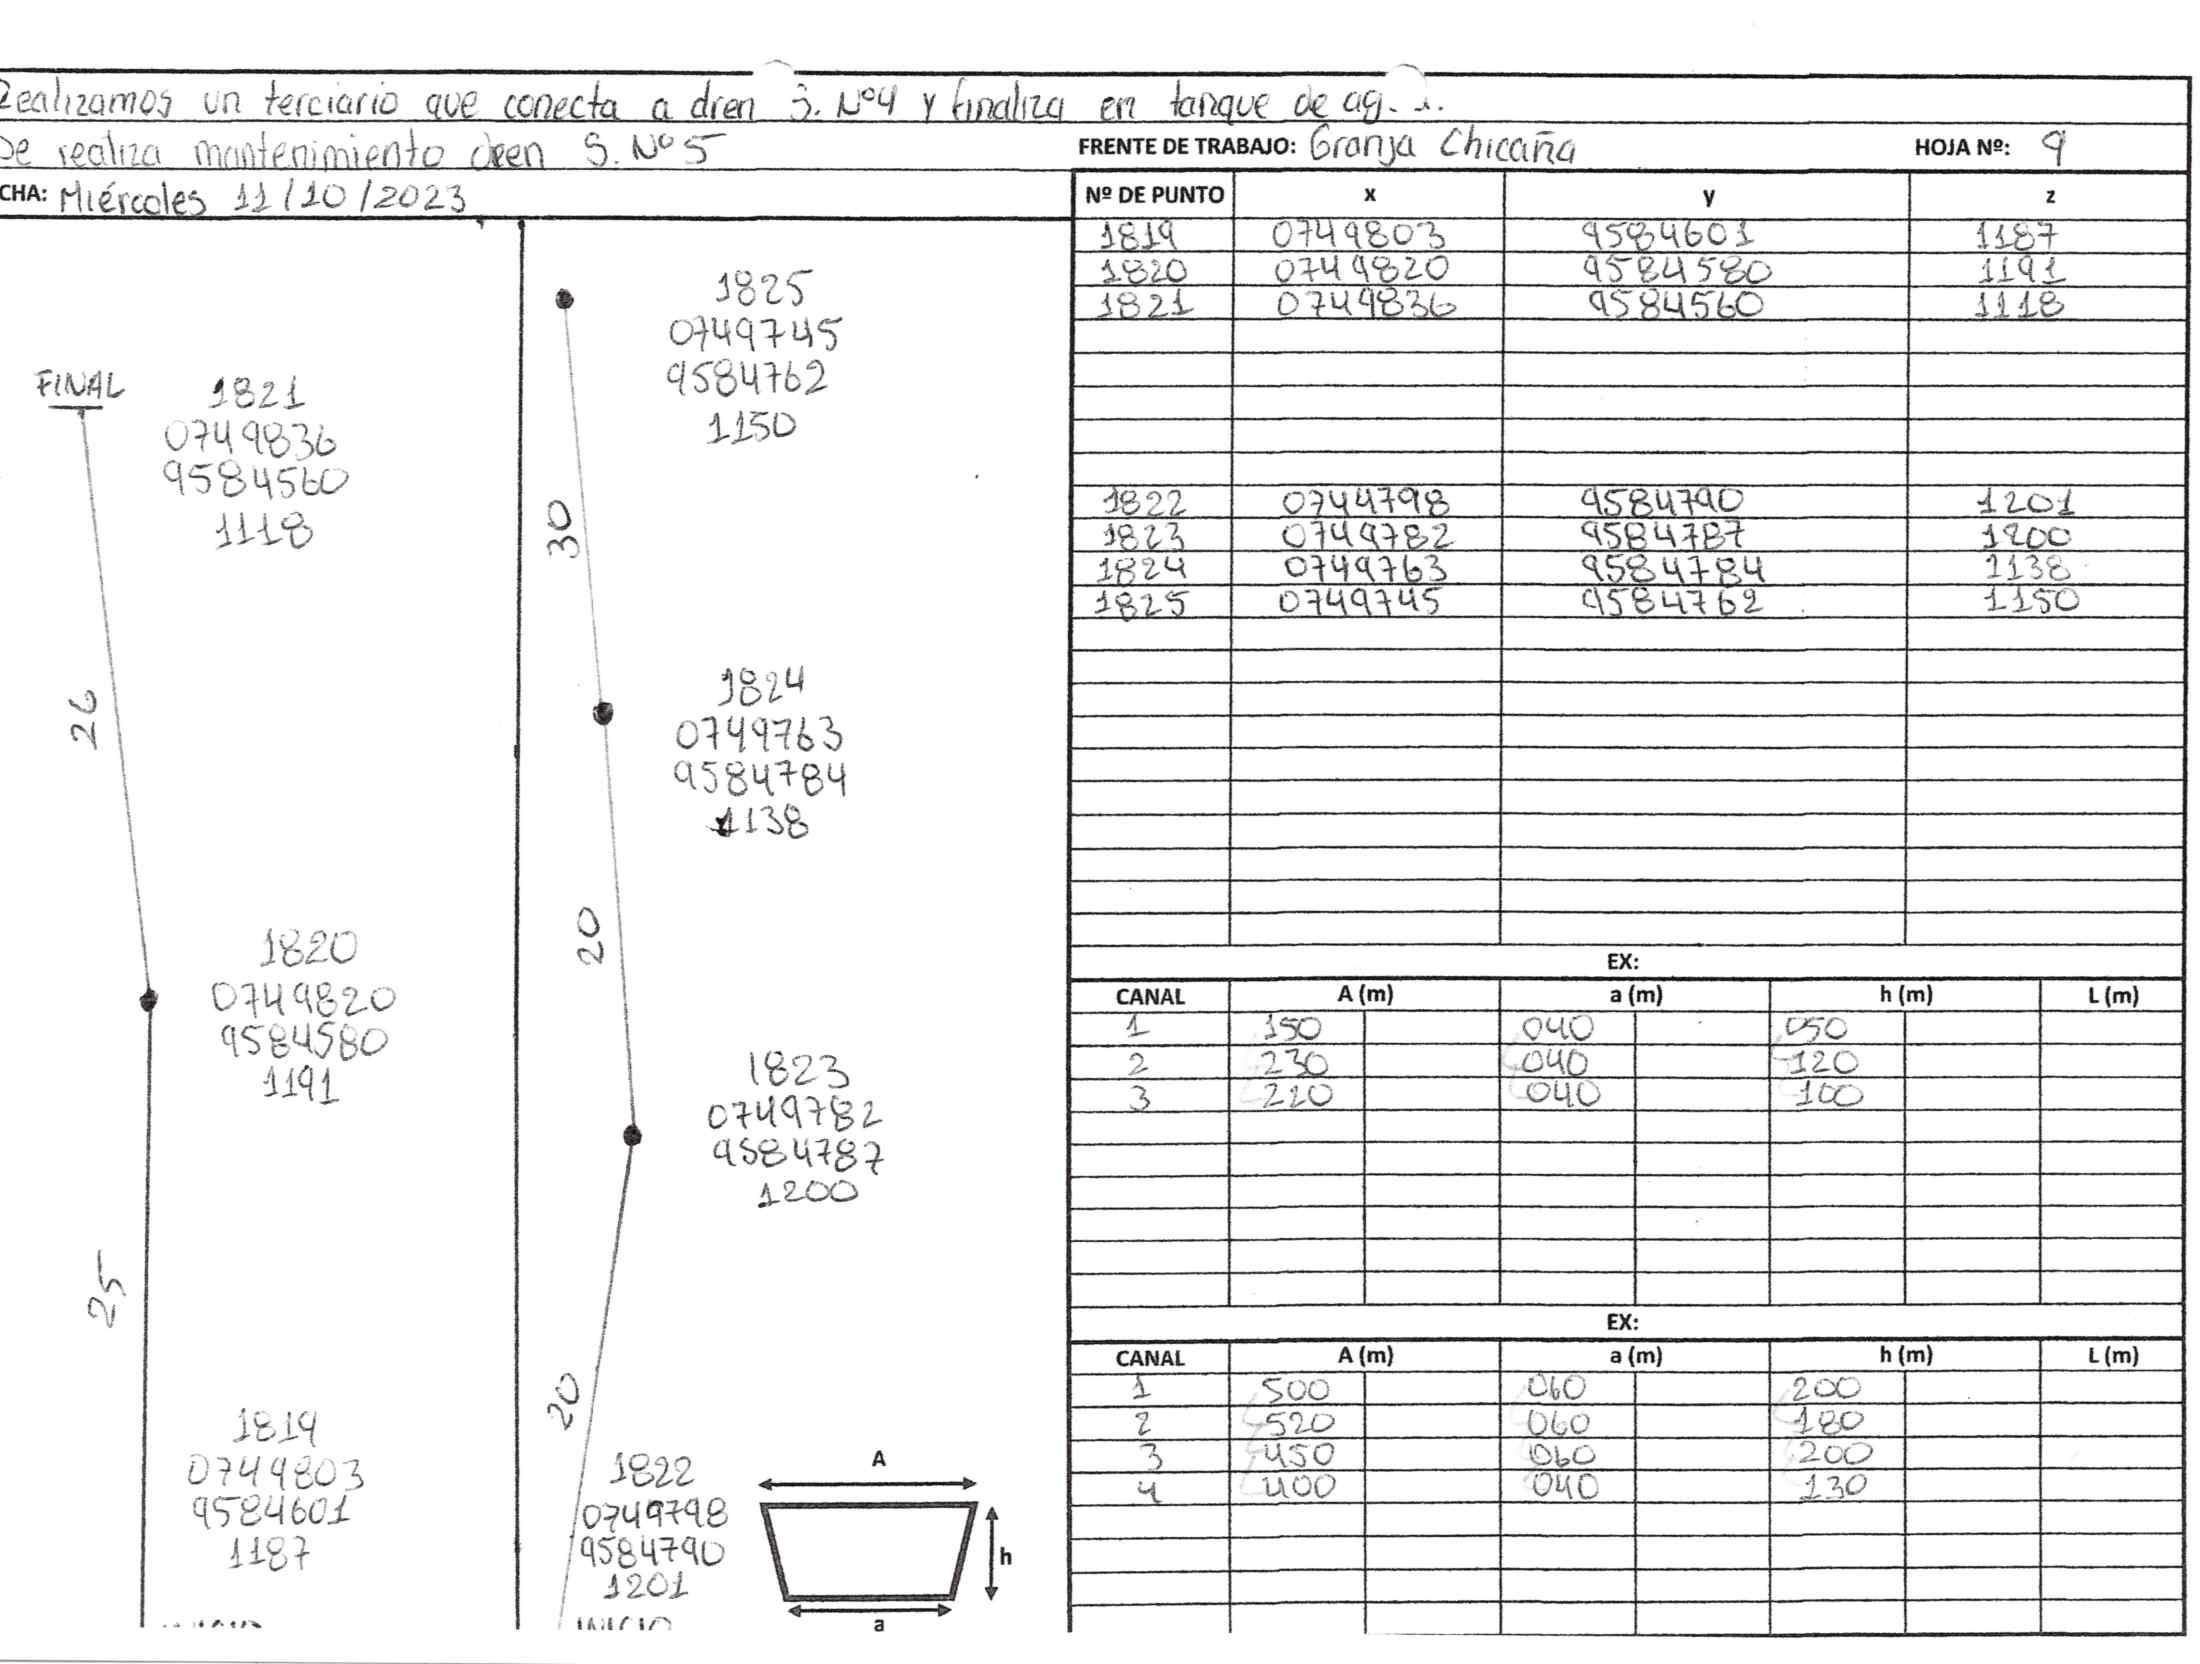 Realizamos un terciario que conecta a dren S. Nº4 y finaliza en tanque de
Se realiza mantenimiento dren S. Nº5
FRENTE DE TRABAJO: Granja Chicaña HOJA Nº: 9
CHA: Miércoles 11/10/2023
FINAL
1821
0749836
9584560
1118
26
1820
0749820
9584580
1191
25
1819
0749803
9584601
1187
1825
0749745
9584762
1150
30
1824
0749763
9584784
1138
20
1823
0749782
9584787
1200
20
1822
0749798
9584790
1201
INICIO
A
h
a
Nº DE PUNTO x y z
1819 0749803 9584601 1187
1820 0749820 9584580 1191
1821 0749836 9584560 1118
1822 0749798 9584790 1201
1823 0749782 9584787 1200
1824 0749763 9584784 1138
1825 0749745 9584762 1150
EX:
CANAL A (m) a (m) h (m) L (m)
1 150 040 050
2 230 040 120
3 220 040 100
EX:
CANAL A (m) a (m) h (m) L (m)
1 500 060 200
2 520 060 180
3 450 060 200
4 400 040 130